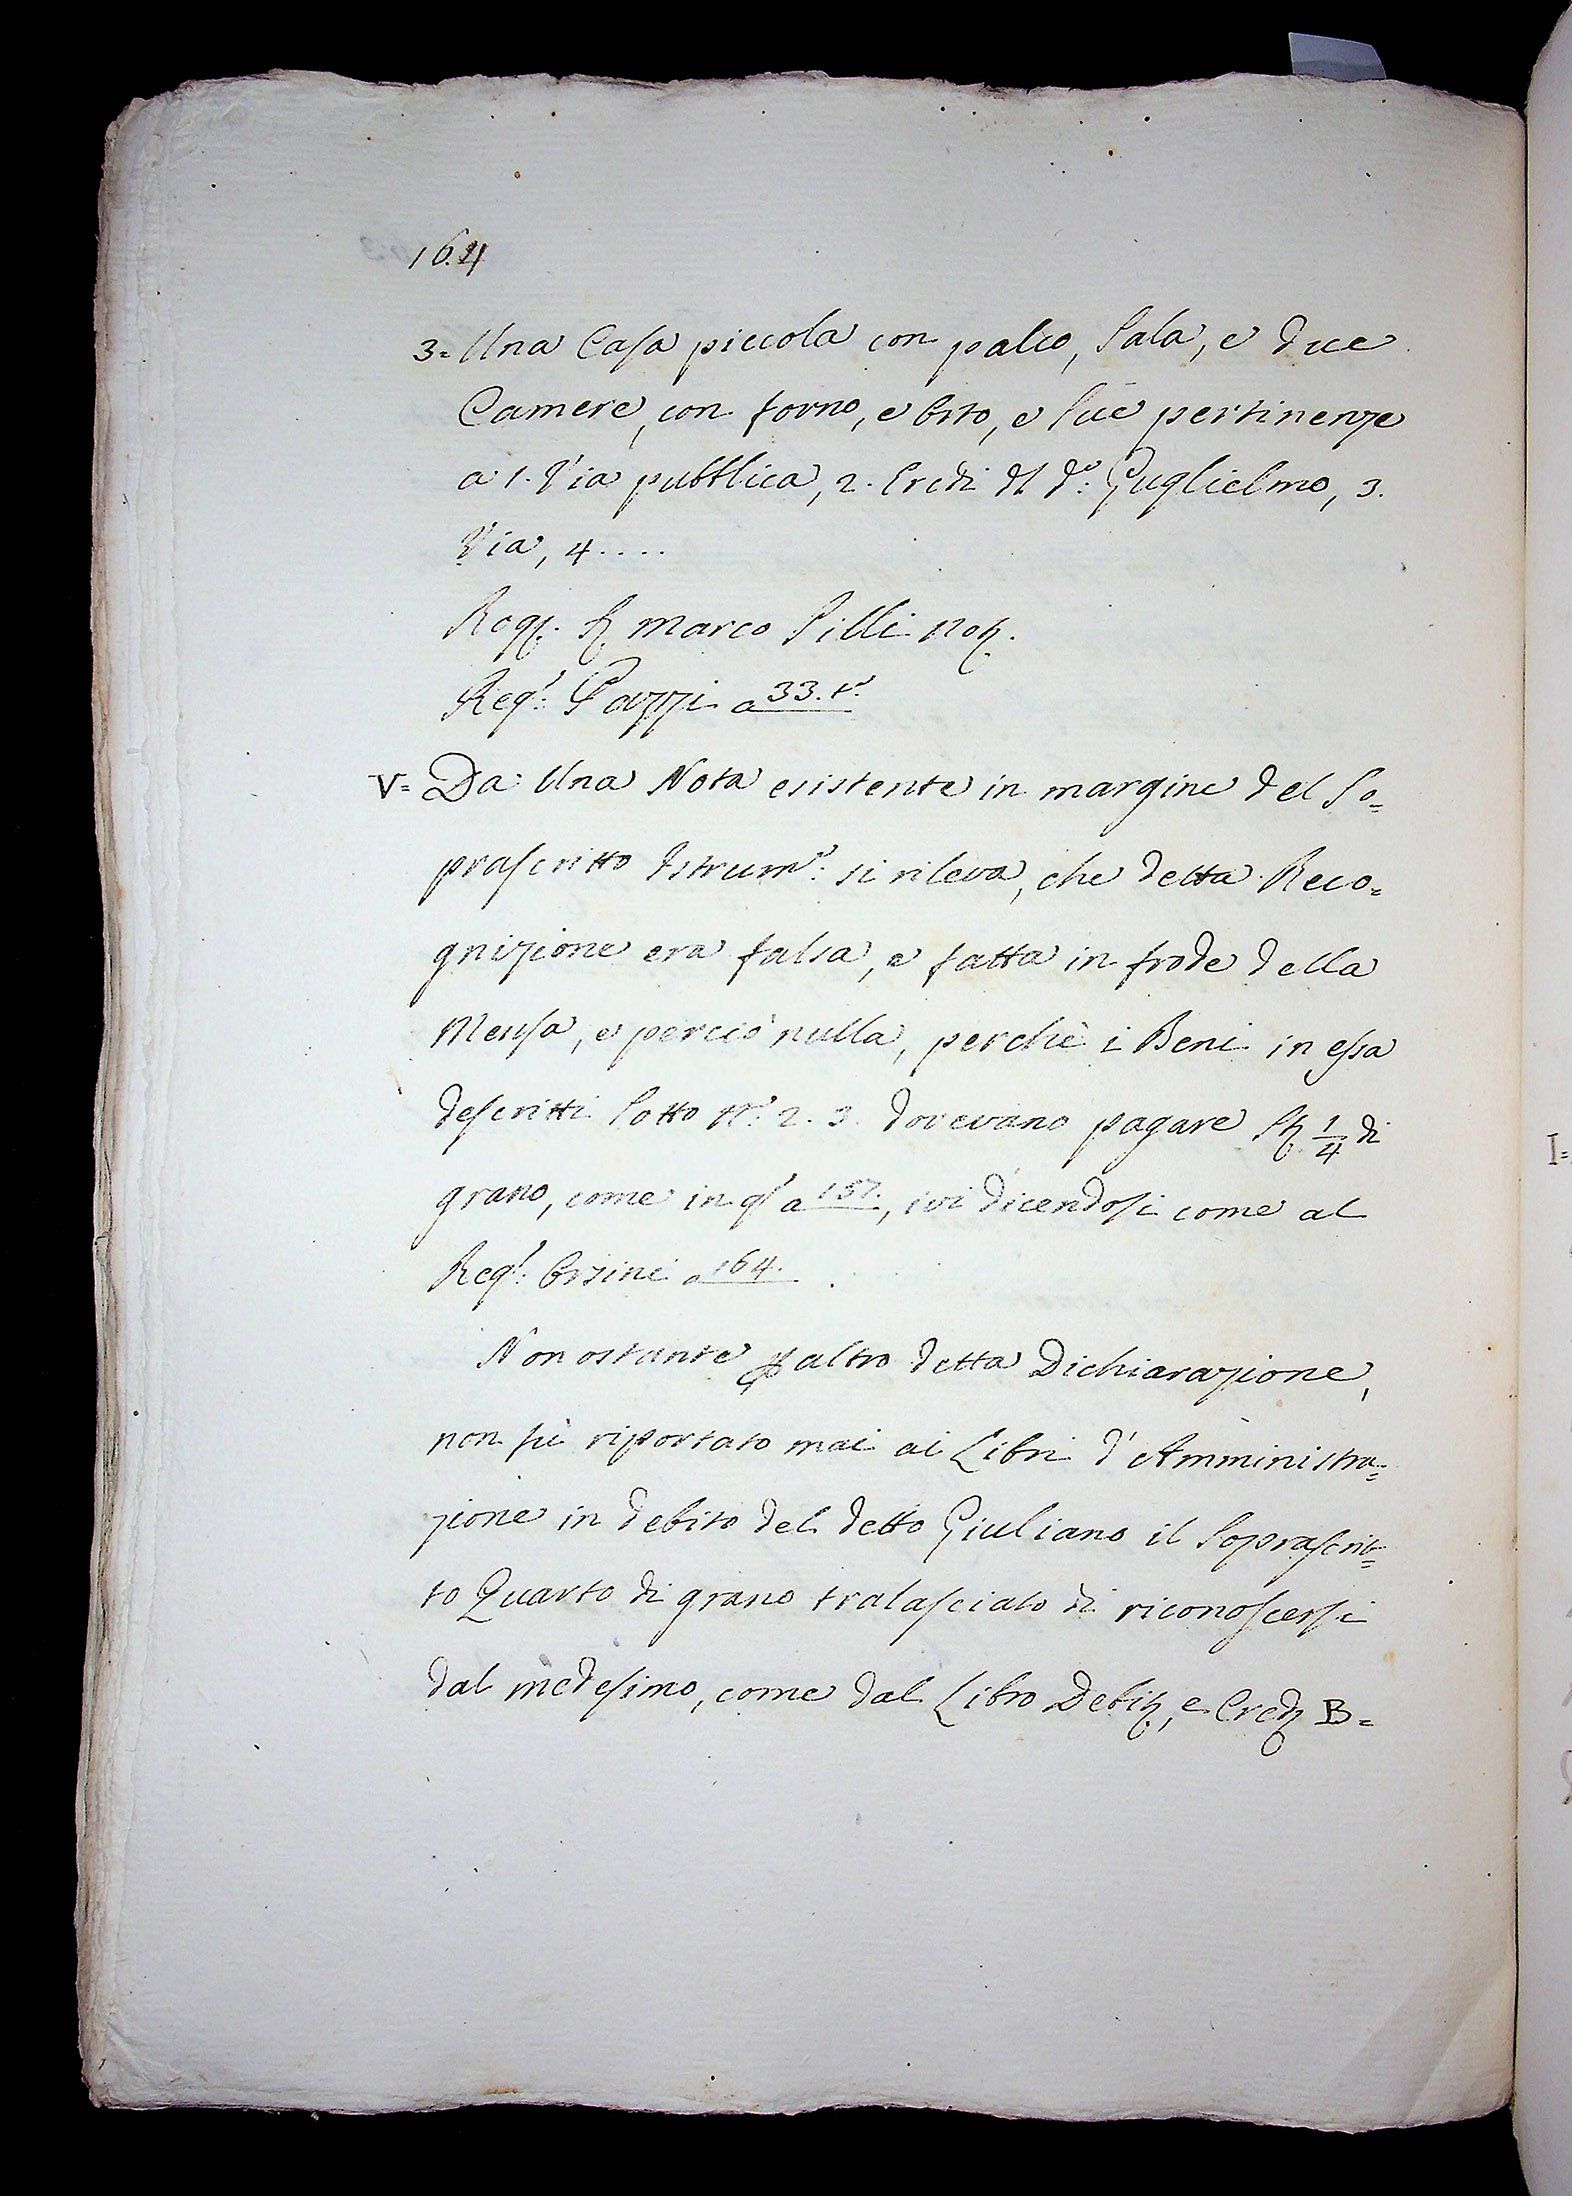 164
3= Una Casa piccola con palco, Sala, e due
Camere, con forno, e Orto, e sue pertinenze
a 1. Via pubblica, 2. Eredi dl do: Guglielmo, 3.
Via, 4....
Rog. Marco Pilli Not.
Regro: Pazzi a 33. to
V= Da Una Nota esistente in margine del So=
prascritto Istrumo: si rileva, che detta Reco=
gnizione era falsa, e fatta in frode della
Mensa, e perciò nulla, perchè i Beni in essa
descritti Sotto No: 2. 3. dovevano pagare St 1/4 di
grano, come in qo a 157., ivi dicendosi come al
Regro: Orsini a 164.
Non ostante p altro detta Dichiarazione,
non fù riportato mai ai Libri d'Amministra=
zione in debito del detto Giuliano il Soprascrit=
to Quarto di grano tralasciato di riconoscersi
dal medesimo, come dal Libro Debit, e Cred B=
I=